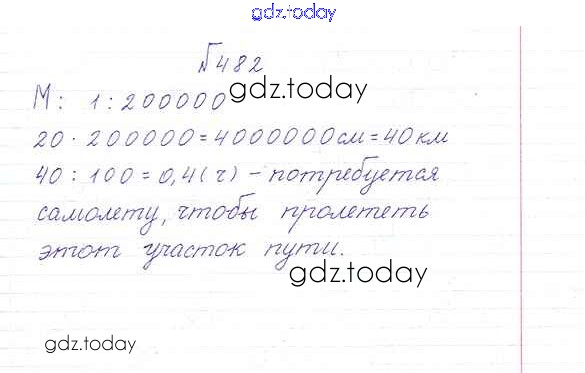 gdz.today
№482
М: 1:200000
gdz.today
20·200000=4000000см=40км
40:100=0,4(ч)-потребуется
самолету, чтобы пролететь
этот участок пути.
gdz.today
gdz.today